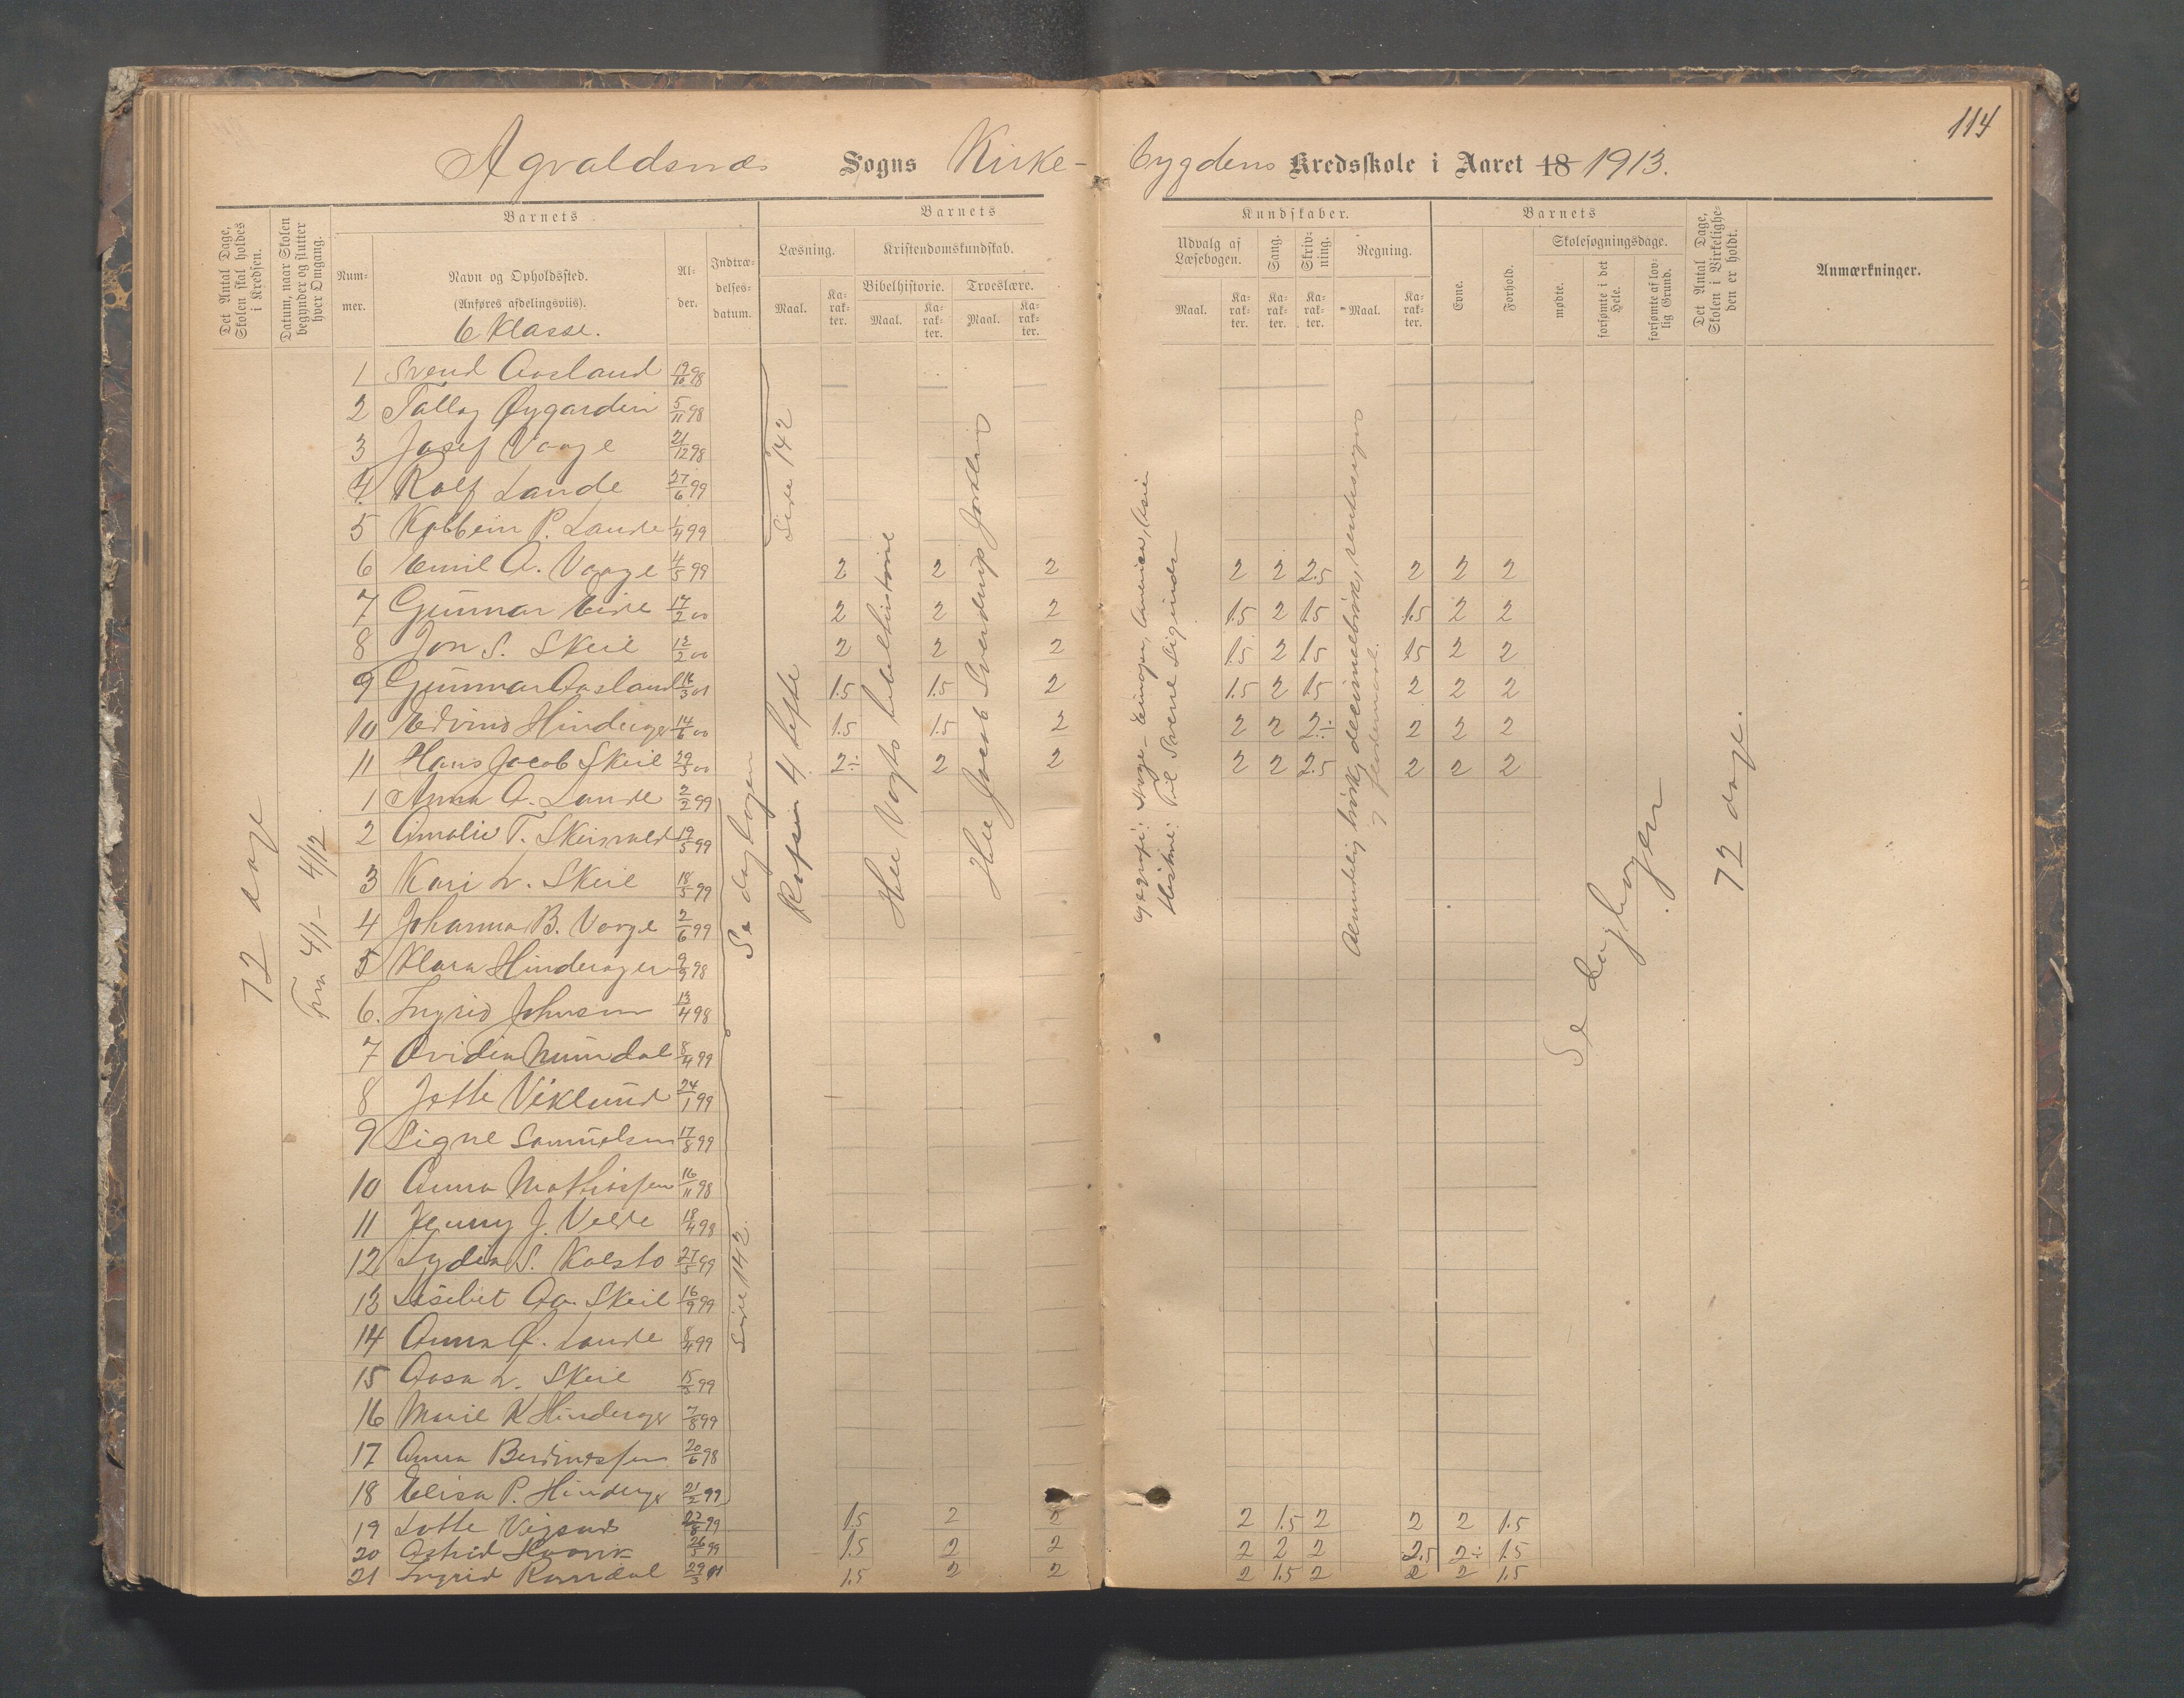 114
Agvaldsnæs Sogns Kirke-bygdens Kredsskole i Aaret 18 1913.
Det Antal Dage, Skolen skal holdes i Kredsen.
Datum, naar Skolen begynder og slutter hver Omgang.
Barnets
Num-mer.
Navn og Opholdssted.
(Anføres afdelingsviis).
6 Klasse.
Al-der.
Indtræ-delses-datum.
Barnets
Læsning.
Maal.
Ka-rak-ter.
Kristendomskundskab.
Bibelhistorie.
Maal.
Ka-rak-ter.
Troeslære.
Maal.
Ka-rak-ter.
Kundskaber.
Udvalg af Læsebogen.
Maal.
Ka-rak-ter.
Sang.
Ka-rak-ter.
Skriv-ning.
Ka-rak-ter.
Regning.
Maal.
Ka-rak-ter.
Barnets
Evne.
Forhold.
Skolesøgningsdage.
mødte.
forsømte i det Hele.
forsømte af lov-lig Grund.
Det Antal Dage, Skolen i Virkelighe-den er holdt.
Anmærkninger.
1 Svend Aasland 19/10 98
2 Tallag Øygarden 5/11 98
3 Josef Vaage 21/12 98
4 Rolf Lande 27/6 99
5 Kolbein P. Lande 1/4 99
6 Emil A. Vaage 4/5 99 2 2 2 2 2 2.5 2 2 2
7 Gunnar Eide 17/2 00 2 2 2 1.5 2 1.5 1.5 2 2
8 Jon S. Skeie 12/2 00 2 2 2 1.5 2 1.5 1.5 2 2
9 Gunnar Aasland 16/3 01 1.5 1.5 2 1.5 2 1.5 2 2 2
10 Edvind Hinderager 14/6 00 1.5 1.5 2 2 2 2÷ 2 2 2
11 Hans Jacob Skeie 29/5 00 2÷ 2 2 2 2 2.5 2 2 2
1 Anna A. Lande 2/2 99
2 Amalie T. Skeisvold 19/5 99
3 Kari L. Skeie 18/5 99
4 Johanna B. Vaage 2/6 99
5 Klara Hinderager 9/9 98
6. Ingrid Johnsen 13/4 98
7 Ovidia Numdal 8/4 99
8 Jotte Viklund 24/1 99
9 Signe Samuelsen 17/8 99
10 Anna Mathiassen 16/11 98
11 Jenny J. Velde 18/4 98
12 Lydia S. Kolstø 27/5 99
13 Lisebet Aa. Skeie 16/9 99
14 Anna A. Lande 8/4 99
15 Aasa L. Skeie 15/5 99
16 Marie K Hinderager 7/8 99
17 Anna Berdinessen 20/6 98
18 Elisa P. Hinderager 21/2 99
19 Lotte Vigsnes 27/8 99 1.5 2 2 2 1.5 2 2 2 1.5
20 Astrid Haavik 26/5 99 1.5 2 2 2 2 2 2.5 2÷ 1.5
21 Ingrid Ramdal 29/3 01 1.5 2 2 2 1.5 2 2 2 1.5
72 dage
Fra 4/1 - 4/12
Se dagbogen
Side 142
Side 142
Rolfsen 4 hefte
Hele Vogts bibelhistorie
Hele Jacob Sverdrups forklaring
Geografi: Norge - Europa, Amerika, Asien
Historie: Til Sverre Sigurdsøn
Almindelig brøk, decimalbrøk, rentesregning
og flademaal.
Se dagbogen
72 dage.